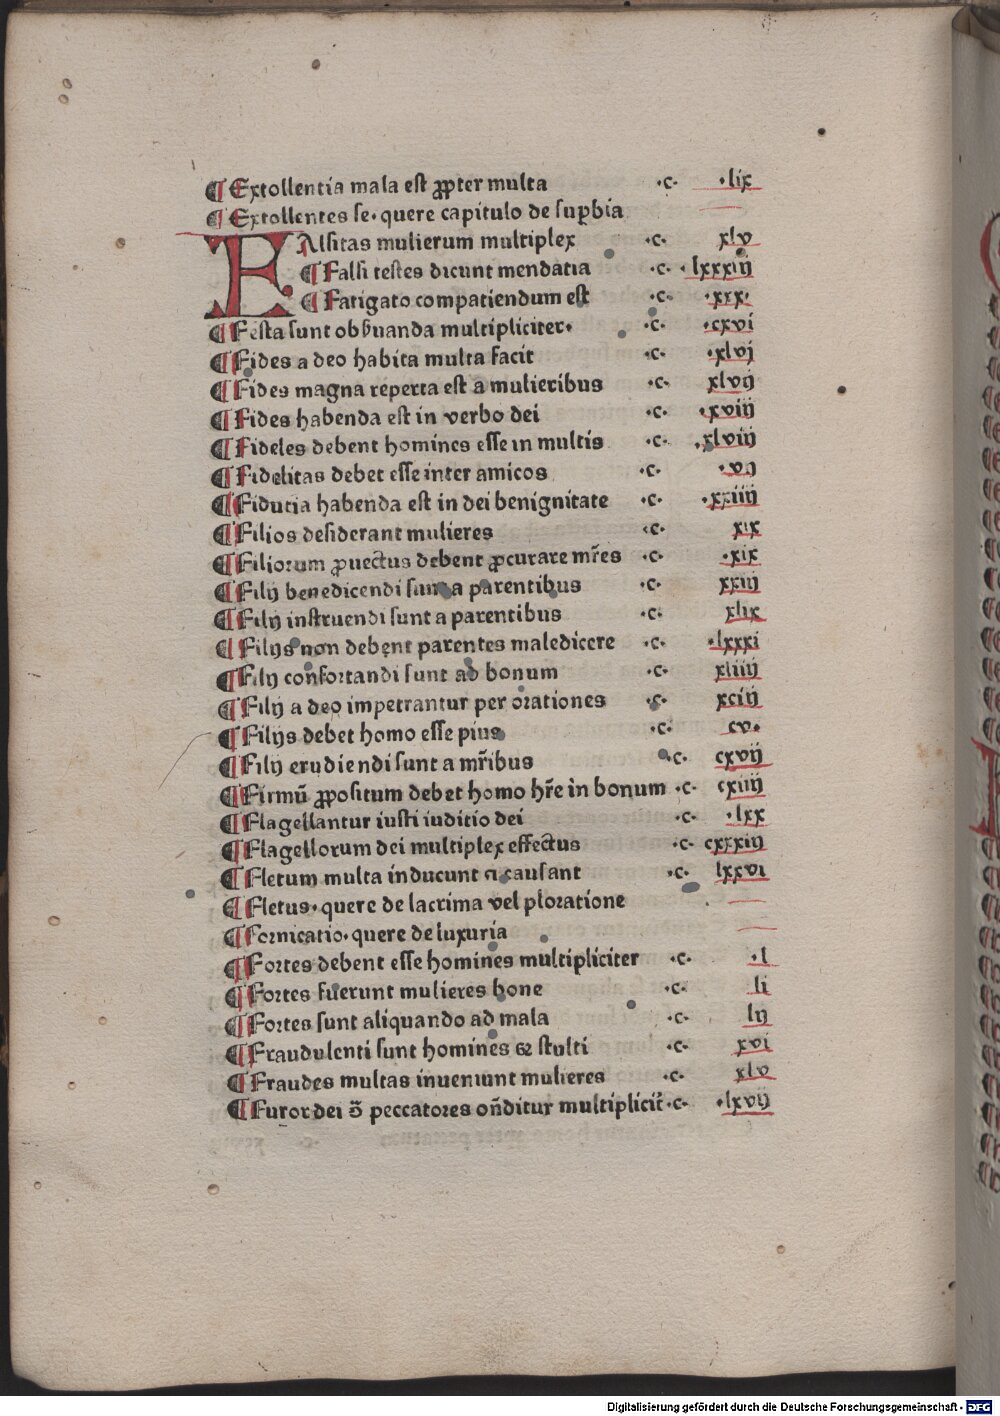 ¶ Extollentia mala est ꝓpter multa ·c· ·lix
¶ Extollentes se· quere capitulo de suꝑbia
FAlsitas mulierum multiplex ·c· xlv
¶ Falsi testes dicunt mendatia ·c· ·lxxxiij
¶ Fatigato compatiendum est ·c· ·xxx·
¶ Festa sunt obẜuanda multipliciter· ·c· ·cxvi
¶ Fides a deo habita multa facit ·c· ·xlvj
¶ Fides magna reperta est a mulieribus ·c· xlvij
¶ Fides habenda est in verbo dei ·c· ·xviij
¶ Fideles debent homines esse in multis ·c· ·xlviij
¶ Fidelitas debet esse inter amicos ·c· ·vij
¶ Fidutia habenda est in dei benignitate ·c· ·xxiiij
¶ Filios desiderant mulieres ·c· xix
¶ Filiorum ꝓuectus debent ꝓcurare mr̄es ·c· ·xix
¶ Filij benedicendi sunt a parentibus ·c· xxiij
¶ Filij instruendi sunt a parentibus ·c· xlix
¶ Filijs non debent parentes maledicere ·c· ·lxxxi
¶ Filij confortandi sunt ad bonum ·c· xliiij
¶ Filij a deo impetrantur per orationes ·c· xciij
¶ Filijs debet homo esse pius ·c· cv·
¶ Filij erudiendi sunt a mr̄ibus ·c· cxvij
¶ Firmū ꝓpositum debet homo hr̄e in bonum ·c· cxiiij
¶ Flagellantur iusti iuditio dei ·c· ·lxx
¶ Flagellorum dei multiplex effectus ·c· cxxxiij
¶ Fletum multa inducunt ⁊ causant ·c· lxxvi
¶ Fletus· quere de lacrima vel ploratione
¶ Fornicatio· quere de luxuria
¶ Fortes debent esse homines multipliciter ·c· ·l
¶ Fortes fuerunt mulieres bone ·c· li
¶ Fortes sunt aliquando ad mala ·c· lij
¶ Fraudulenti sunt homines ⁊ stulti ·c· xvi
¶ Fraudes multas inueniunt mulieres ·c· xlv
¶ Furor dei ↄ̄ peccatores on̄ditur multiplicit̄ ·c· ·lxvij
Digitalisierung gefördert durch die Deutsche Forschungsgemeinschaft · DFG